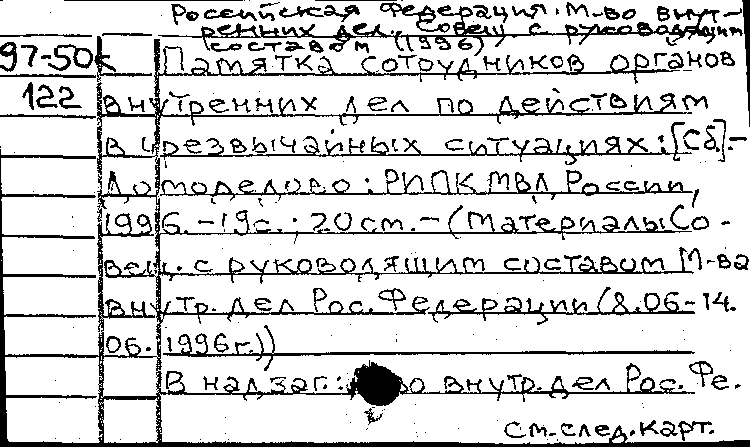 Российская Федерация. М-во внут-
ренних дел. Совещ. с руководящим
составом (1996)
97-50к Памятка сотрудников органов
122 внутренних дел по действиям
в чрезвычайных ситуациях: [Сб]. -
Домоделово: РИПК МВД России,
1996. - 19с.; 20 см. - (Материалы Со-
вещ. с руководящим составом М-ва
внутр. дел Рос. Федерации (8.06-14.
06. 1996г.))
В надзаг.: во внутр. дел Рос. Фе.
См. след. карт.